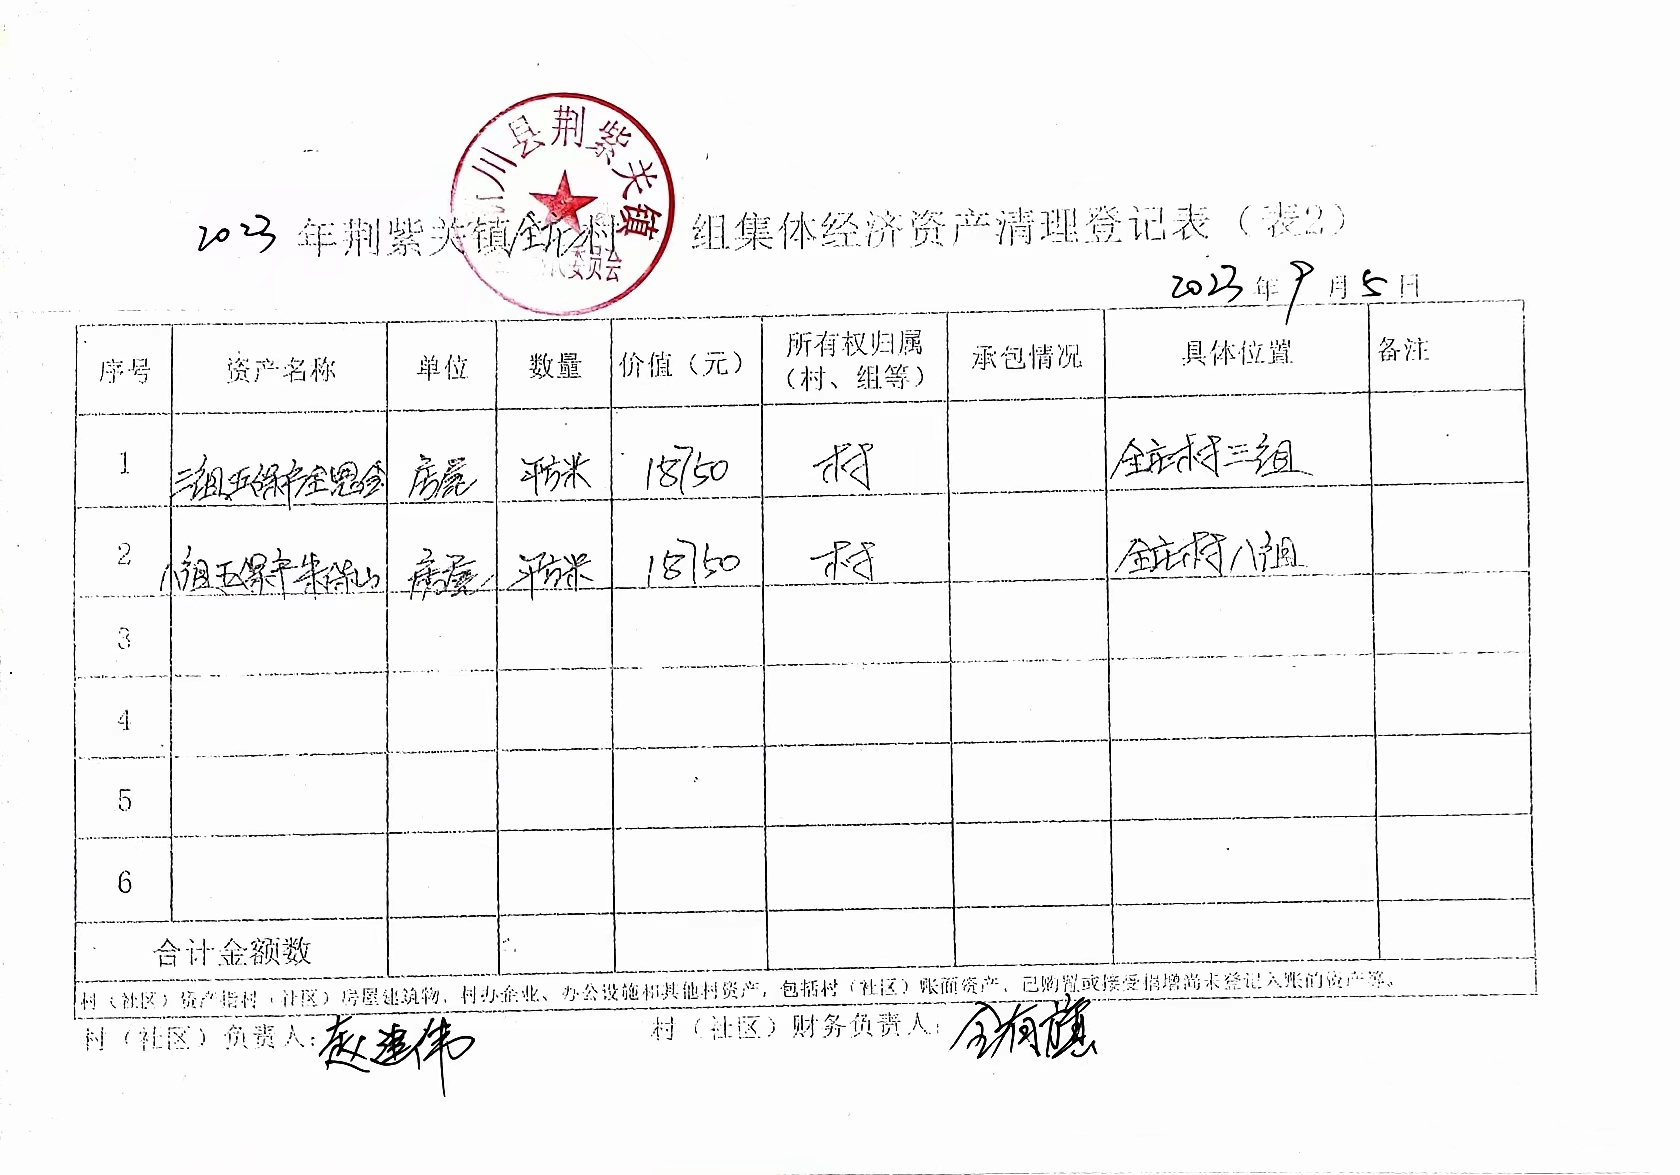 川县荆紫关镇
委员会
2023 年荆紫关镇全庄村 组集体经济资产清理登记表（表2）
2023 年 9 月 5 日
序号 资产名称 单位 数量 价值（元） 所有权归属（村、组等） 承包情况 具体位置 备注
1 三组五保户全恩金 房屋 平方米 18750 村 全庄村三组
2 八组五保户朱保山 房屋 平方米 18750 村 全庄村八组
3
4
5
6
合计金额数
村（社区）资产指村（社区）房屋建筑物，村办企业、办公设施和其他村资产，包括村（社区）账面资产，已购置或接受捐增尚未登记入账的资产等。
村（社区）负责人：赵建伟 村（社区）财务负责人：全有旗